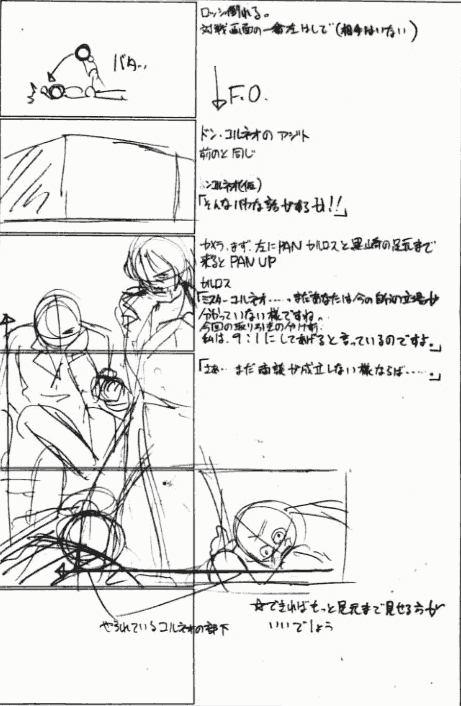 ロッシ倒れる。
対戦画面の一番左はしで(相手はいない)
バター
F.O.
ドン・コルネオのアジト
前のと同じ
ンコルネオ(仮)
「そんなバカな話があるか!!」
カメラ、まず、左にPAN カルロスと黒山崎の足元まで
来るとPAN UP
カルロス
「ミスターコルネオ‥‥。まだあなたは今の自分の立場が
分かっていない様ですね。
今回の取り引きの分け前
私は、9:1にしてあげると言っているのですよ。」
「さぁ‥ まだ商談が成立しない様ならば‥‥。」
☆できればもっと足元まで見せる方が
いいでしょう
やられているコルネオの部下